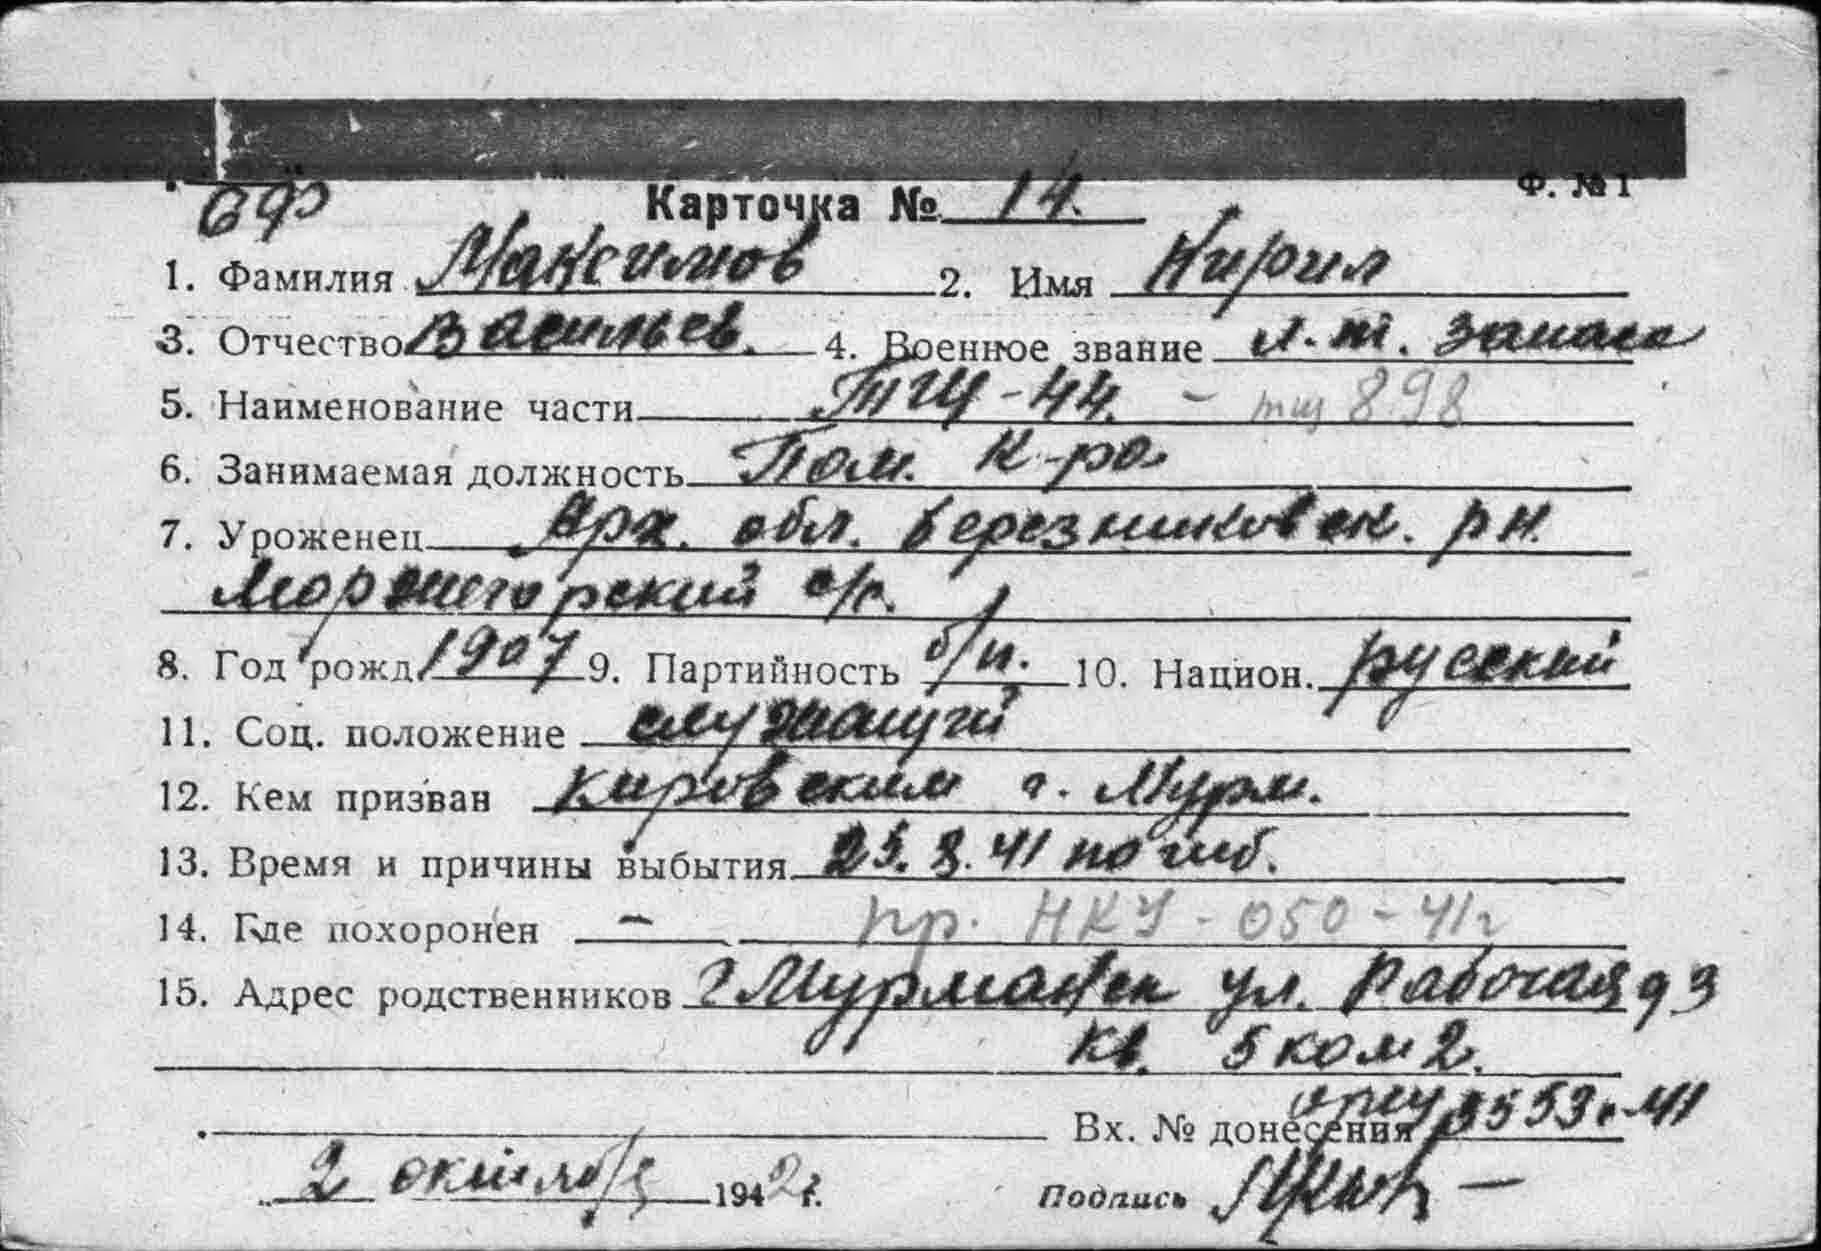 Ф. № 1
СФ
Карточка № 14.
1. Фамилия Максимов 2. Имя Кирил
3. Отчество Васильев. 4. Военное звание л-т. запаса
5. Наименование части ТЩ-44. - тщ 898
6. Занимаемая должность Пом. к-ра
7. Уроженец Арх. обл. Березниковск. рн.
Моржегорский с/с.
8. Год рожд. 1907 9. Партийность б/п. 10. Национ. русский
11. Соц. положение служащий
12. Кем призван Кировским г. Мурм.
13. Время и причины выбытия 25. 8. 41 погиб.
14. Где похоронен — пр. НКУ - 050 - 41г
15. Адрес родственников г Мурманск ул. Рабочая д 3
кв. 5 ком 2.
Вх. № донесения 3553с-41
2 октября 1942 г. Подпись